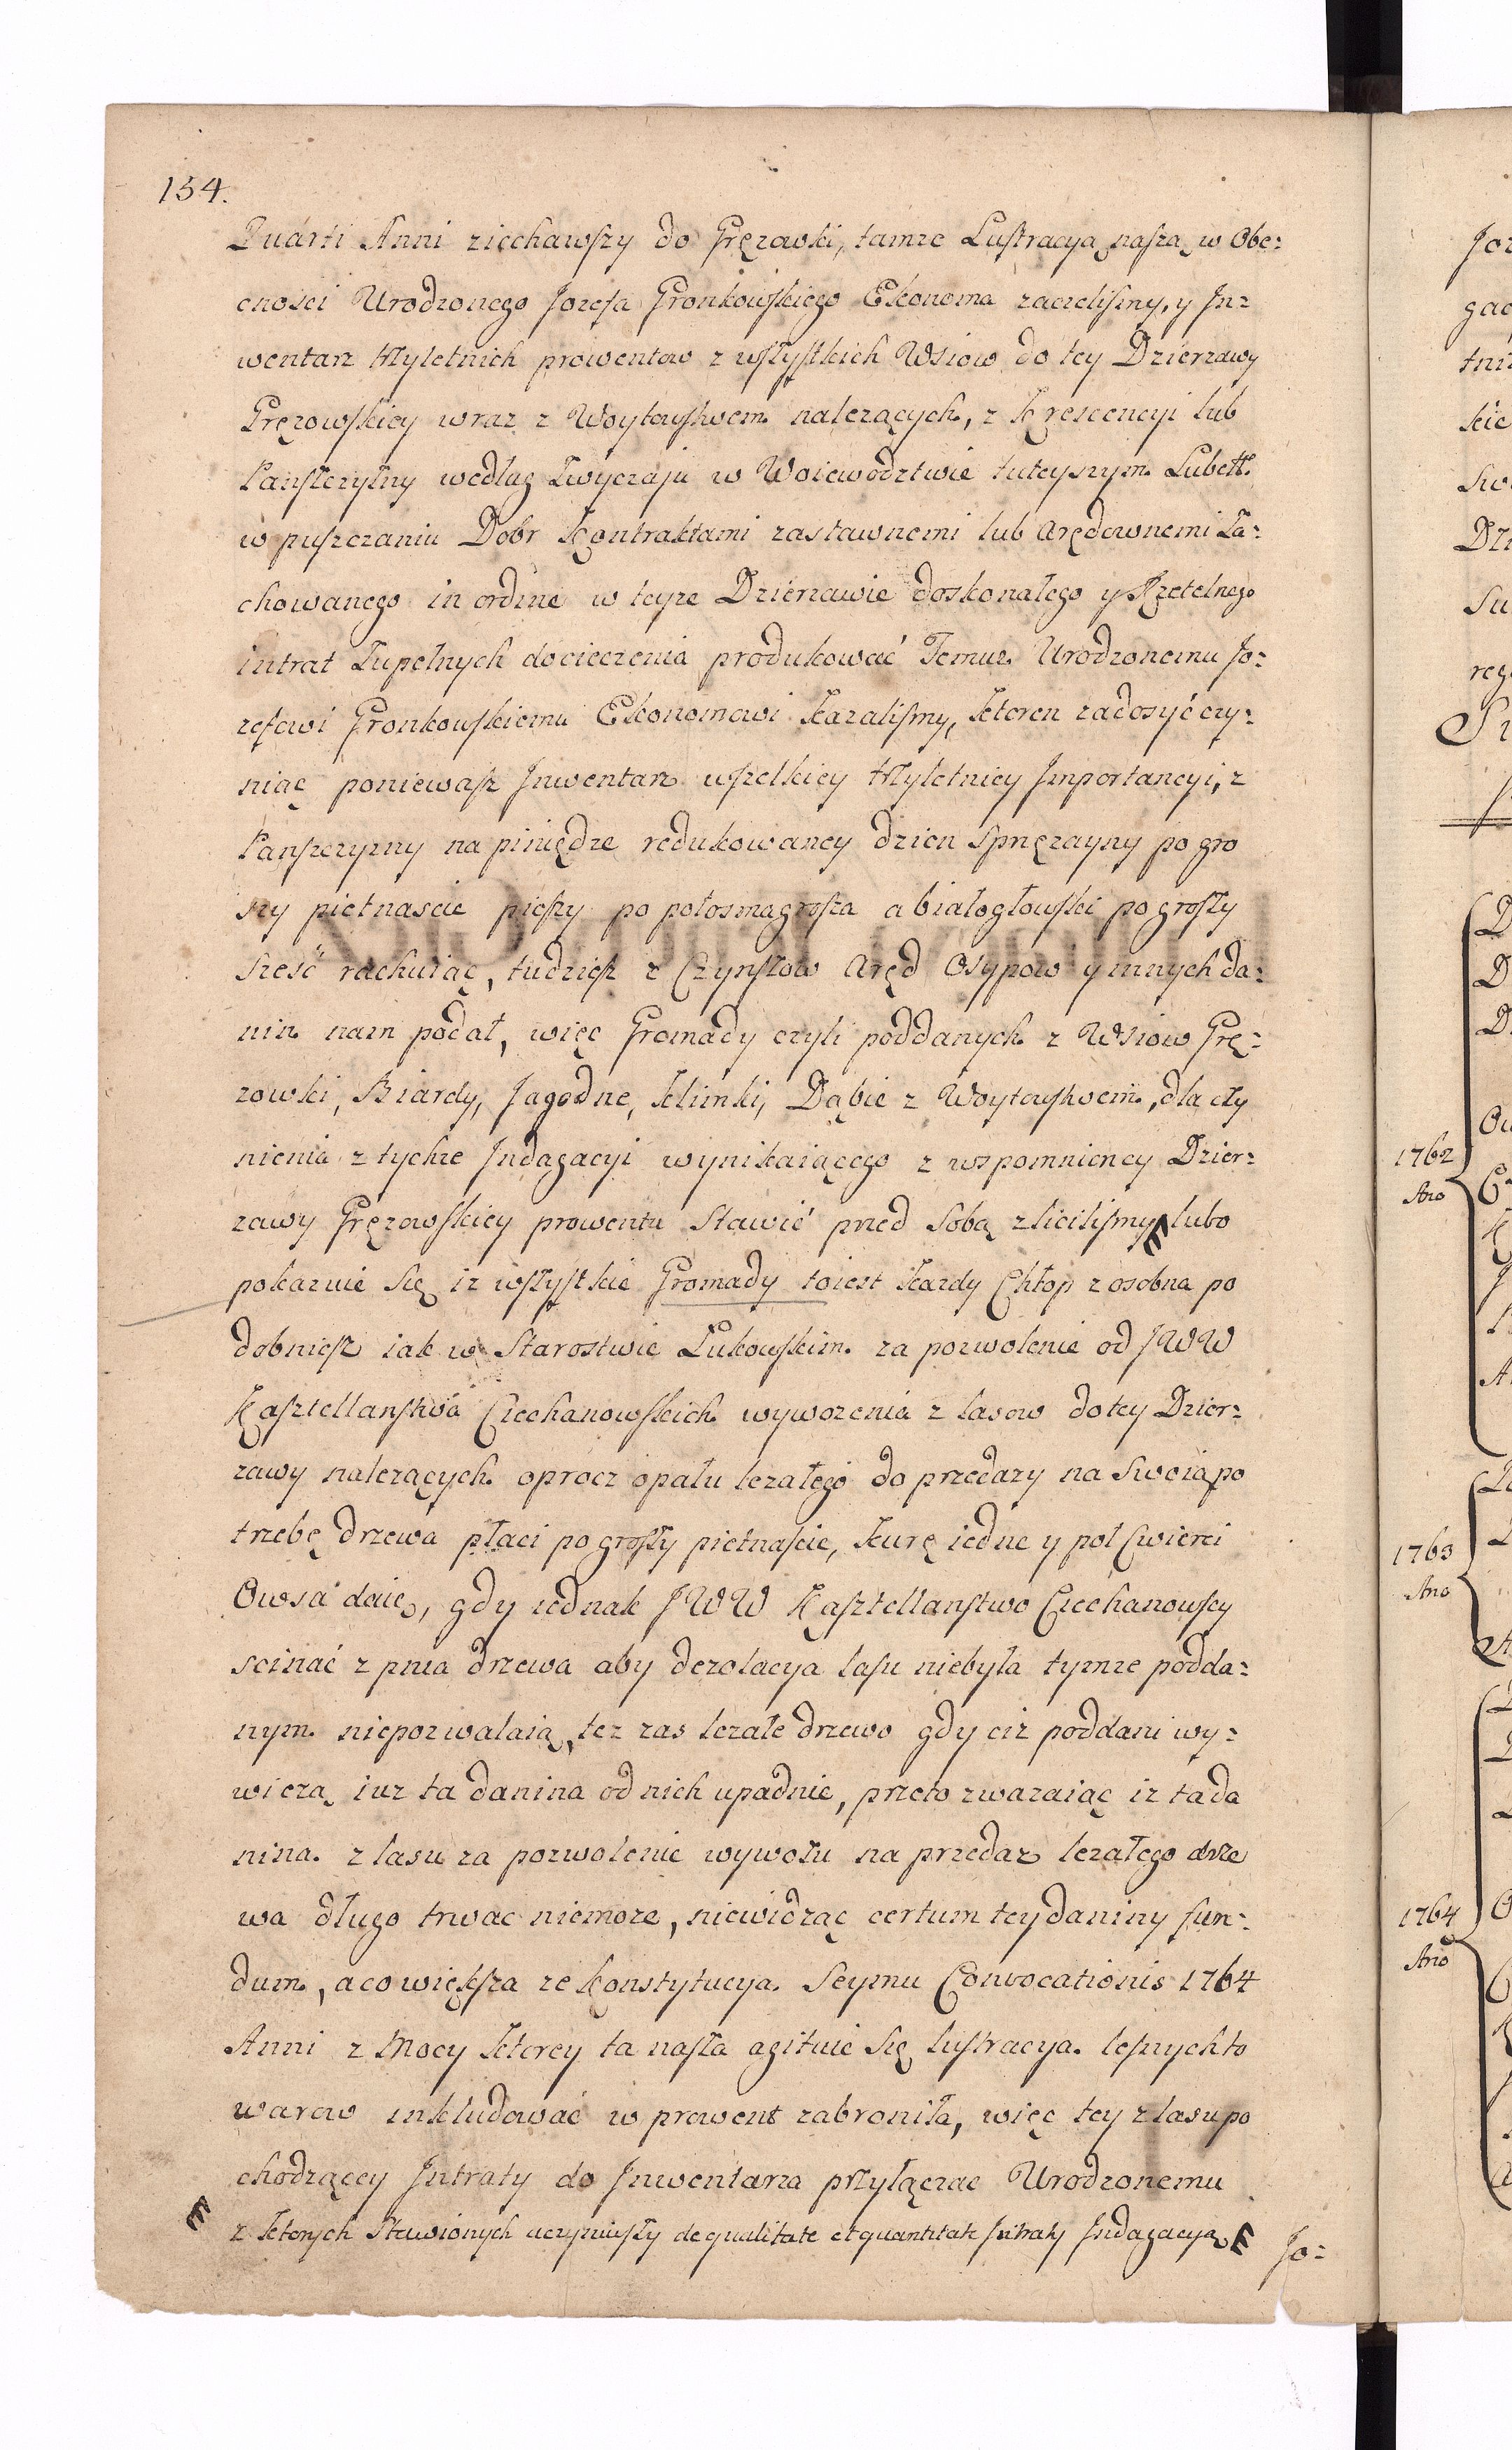 154.
Quarti Anni ziechawszy do Gręzowki, tamze Lustracyą naszą w Obe=
cnosci Urodzonego Jozefa Gronkowskiego Ekonoma zaczelismy, y In=
wentarz trzyletnich prowentow z wszystkich Wsiow do tey Dzierzawy
Gręzowskiey wraz z Woytowstwem nalezących, z Krescencyi lub
Panszczyzny według Zwyczaju w Woiewodztwie tuteyszym Lubell.
w puszczaniu Dobr Kontraktami zastawnemi lub Arędownemi Za=
chowanego in ordine w teyze Dzierzawie doskonałego y Rzetelnego
intrat Zupełnych docieczenia produkować Temuz Urodzonemu Jo=
zefowi Gronkowskiemu Ekonomowi Kazalismy, Ktoren zadosyć czy=
niąc poniewasz Inwentarz wszelkiey trzyletniey Importancyi, z
Panszczyzny na piniędze redukowaney dzien sprzęzayny po gro
szy pietnascie pieszy po połosmagrosza a białogłowski po groszy
szesc rachuiąc, tudziesz z Czynszow Aręd Osypow y innych da=
nin nam podał, więc Gromady czyli poddanych z Wsiow Grę=
zowki, Biardy, Jagodne, Klimki, Dąbie z Woytowstwem, dla czy
nienia z tychze Indagacyi wynikaiącego z wspomnioney Dzier=
zawy Gręzowskiey prowentu Stawić przed Sobą zliciliſmy lubo
pokazuie się iz wszystkie Gromady toiest Kazdy Chłop z osobna po
dobniesz iak w Starostwie Łukowskim za pozwolenie od JWW
Kasztellanstwa Ciechanowskich wywozenia z lasow do tey Dzier=
zawy nalezących oprocz opału lezałego do przedazy na Swoią po
trzebę drzewa płaci po groszy pietnascie, Kurę iednę y poł Cwierci
Owsa daie, gdy iednak JWW Kasztellanstwo Ciechanowscy
scinać z pnia drzewa aby dezolacya lasu niebyła tymze podda=
nym niepozwalaią, tez zas lezałe drzewo gdy ciz poddani wy=
wiezą iuz ta danina od nich upadnie, przeto zwazaiąc iz ta da
nina z lasu za pozwolenie wywozu na przedaz lezałego drze
wa długo trwac niemoze, niewidząc certum tey daniny fun=
dum, aco większa ze Konstytucya Seymu Convocationis 1764
Anni z Mocy Ktorey ta nasza agituie się lustracya lesnych to
warow inkludować w prowent zabroniła, więc tey z lasu po
chodzącey Intraty do Inwentarza przyłączac Urodzonemu
z Ktorych Stawionych uczyniwszy de qualitate et quantitate Intraty Indagacyą
Jo=
1762
Ano
1763
Ano
1764
Ano